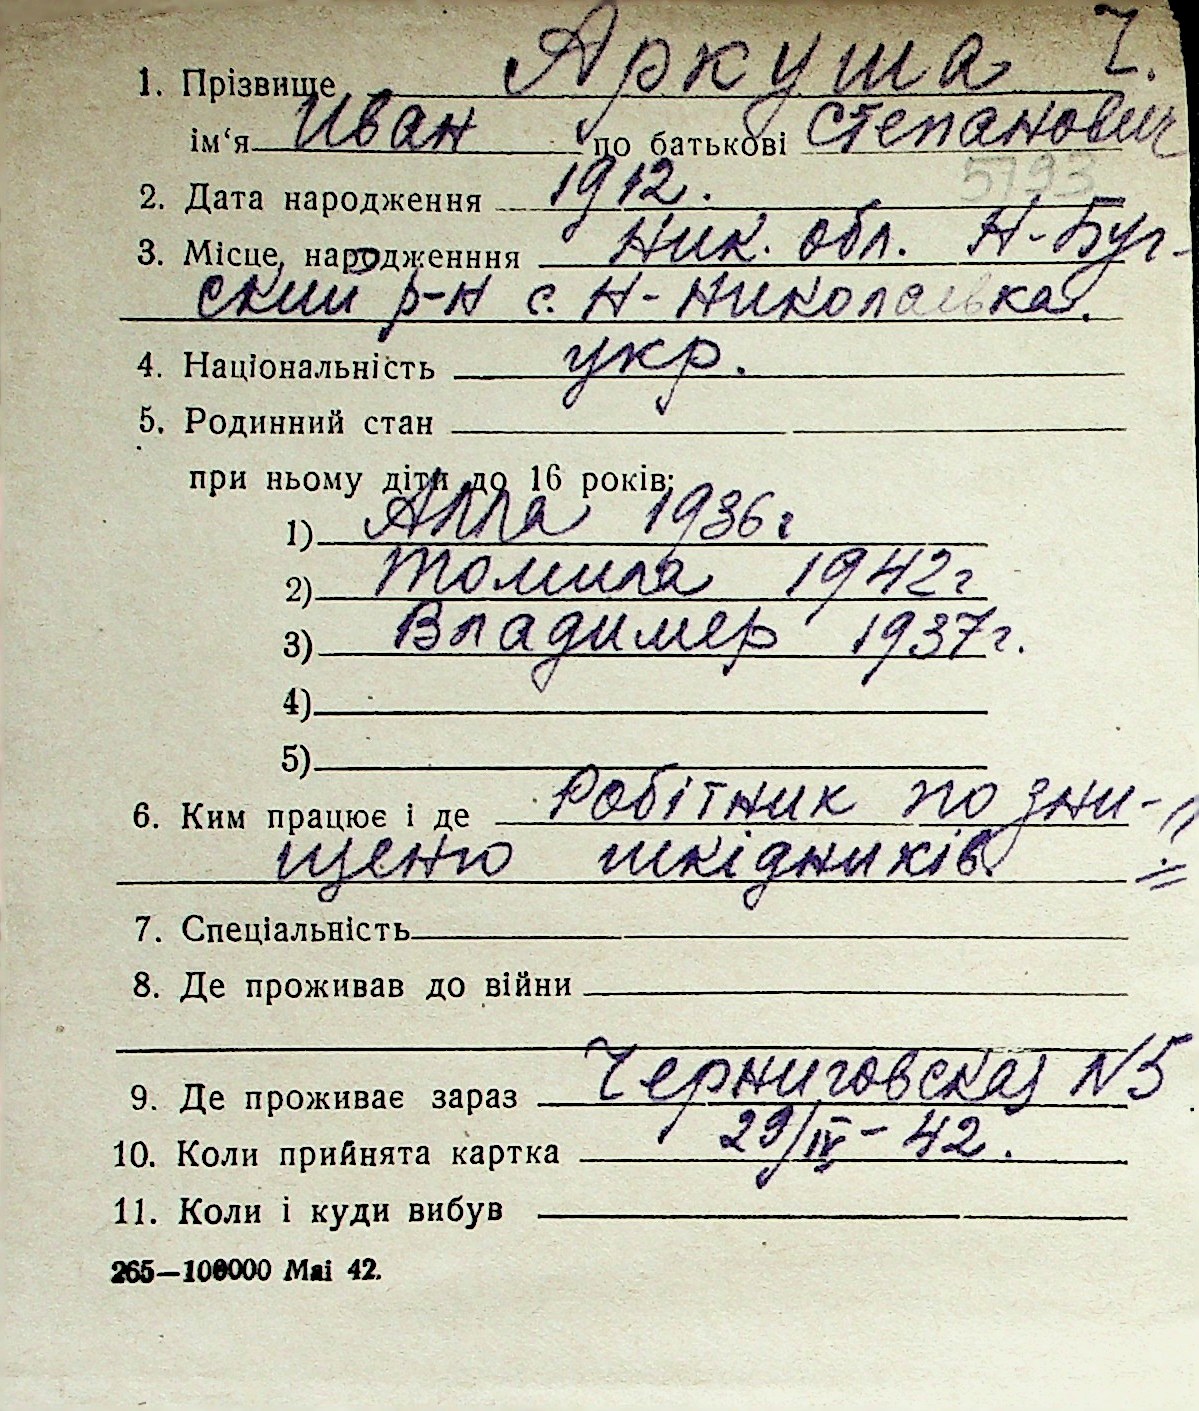 1. Прізвище Аркуша Ч.
ім'я Иван по батькові Степанович
5793
2. Дата народження 1912.
3. Місце народженння Ник. обл. Н-Буг-
ский р-н с. Н-Николаевка.
4. Національність укр.
5. Родинний стан
при ньому діти до 16 років:
1) Алла 1936г
2) Томила 1942г
3) Владимер 1937г.
4)
5)
6. Ким працює і де Робітник по зни-
щеню шкідників
7. Спеціальність
8. Де проживав до війни
9. Де проживає зараз Черниговская N5
10. Коли прийнята картка 29/IV-42.
11. Коли і куди вибув
265—100000 Mai 42.